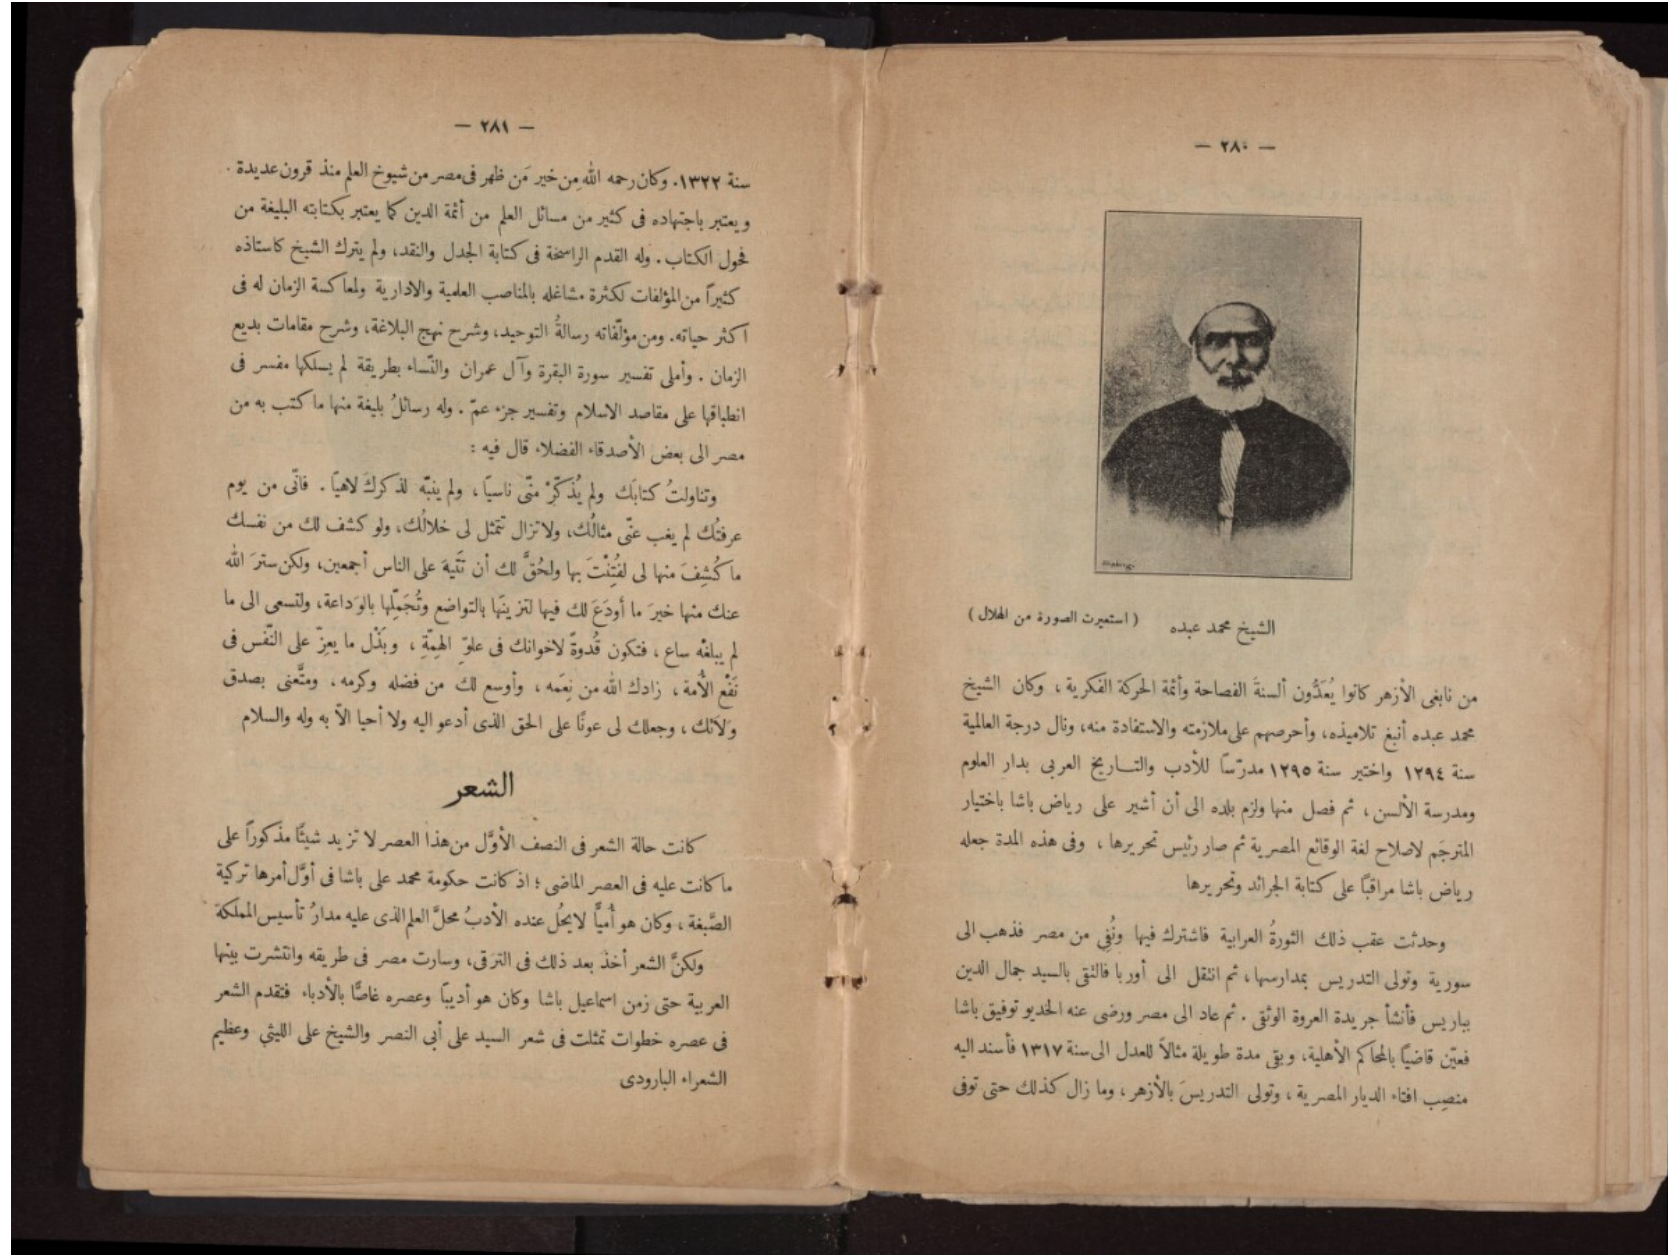 — ٢٨٠ —
الشيخ محمد عبده ( استعيرت الصورة من الهلال )
من نابغى الأزهر كانوا يُعَدُّون ألسنةَ الفصاحة وأئمة الحركة الفكرية ، وكان الشيخ
محمد عبده أنبغ تلاميذه، وأحرصهم على ملازمته والاستفادة منه، ونال درجة العالمية
سنة ١٢٩٤ واختير سنة ١٢٩٥ مدرّسًا للأدب والتـــاريخ العربى بدار العلوم
ومدرسة الألسن ، ثم فصل منها ولزم بلده الى أن أشير على رياض باشا باختيار
المترجَم لاصلاح لغة الوقائع المصرية ثم صار رئيس تحريرها ، وفى هذه المدة جعله
رياض باشا مراقبًا على كتابة الجرائد وتحريرها
وحدثت عقب ذلك الثورةُ العرابية فاشترك فيها ونُفِي من مصر فذهب الى
سورية وتولى التدريس بمدارسها ، ثم انتقل الى أوربا فالتقى بالسيد جمال الدين
بباريس فأنشأ جريدة العروة الوثقى . ثم عاد الى مصر ورضى عنه الخديو توفيق باشا
فعيّن قاضيًا بالمحاكم الأهلية، وبقى مدة طويلة مثالاً للعدل الى سنة ١٣١٧ فأسند اليه
منصِب افتاء الديار المصرية ، وتولى التدريسَ بالأزهر ، وما زال كذلك حتى توفى
— ٢٨١ —
سنة ١٣٢٢. وكان رحمه الله مِن خير مَن ظهر فى مصر من شيوخ العلم منذ قرون عديدة .
ويعتبر باجتهاده فى كثير من مسائل العلم من أئمة الدين كما يعتبر بكتابته البليغة من
فحول الكتاب . وله القدم الراسخة فى كتابة الجدل والنقد، ولم يترك الشيخ كاستاذه
كثيراً من المؤلفات لكثرة مشاغله بالمناصب العلمية والادارية ولمعاكسة الزمان له فى
اكثر حياته. ومن مؤلّفاته رسالةُ التوحيد، وشرح نهج البلاغة، وشرح مقامات بديع
الزمان . وأملى تفسير سورة البقرة وآل عمران والنّساء بطريقة لم يسلكها مفسر فى
انطباقها على مقاصد الاسلام وتفسير جزء عمّ . وله رسائلُ بليغة منها ما كتب به من
مصر الى بعض الأصدقاء الفضلاء قال فيه :
وتناولتُ كتابَك ولم يُذَكّرْ منّى ناسيًا ، ولم ينبّه لذكرك لاهيًا . فانّى من يوم
عرفتُك لم يغب عنّى مثالُك، ولا تزال تتمثل لى خلالُك، ولو كشف لك من نفسك
ما كُشِفَ منها لى لفُتِنْتَ بها ولحُقَّ لك أن تَتِيهَ على الناس أجمعين، ولكن سترَ الله
عنك منها خيرَ ما أودَعَ لك فيها لتزينَها بالتواضع وتُجَمِّلَها بالوَداعة، ولتسعى الى ما
لم يبلغْه ساع ، فتكون قُدوةً لاخوانك فى علوّ الهِمّةِ ، وبَذْل ما يعِزّ على النّفس فى
نَفْع الأمة ، زادك الله من نِعَمه ، وأوسع لك من فضله وكرمه ، ومتَّعنى بصدق
وَلائك ، وجعلك لى عونًا على الحق الذى أدعو اليه ولا أحيا الاّ به وله والسلام
الشعر
كانت حالة الشعر فى النصف الأوَّل من هذا العصر لا تزيد شيئًا مذكوراً على
ما كانت عليه فى العصر الماضى ؛ اذ كانت حكومة محمد على باشا فى أوَّل أمرها تركية
الصَّبغة ، وكان هو أُميًّا لا يحُل عنده الأدبُ محلَّ العلم الذى عليه مدارُ تأسيس المملكة
ولكنَّ الشعر أخذ بعد ذلك فى الترقى، وسارت مصر فى طريقه وانتشرت بينها
العربية حتى زمن اسماعيل باشا وكان هو أديبًا وعصره غاصًّا بالأدباء فتقدم الشعر
فى عصره خطوات تمثلت فى شعر السيد على أبى النصر والشيخ على الليثي وعظيم
الشعراء البارودى